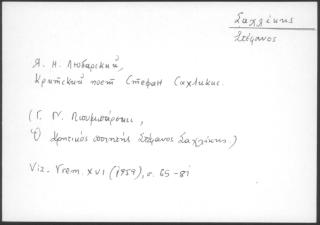 Σαχλίκης
Στέφανος
Я. Н. Любарский,
Критский поэт Стефан Сахликис.
Ὁ Κρητικὸς ποιητὴς Στέφανος Σαχλίκης.)
Viz. Vrem. XVI (1959), σ. 65-81